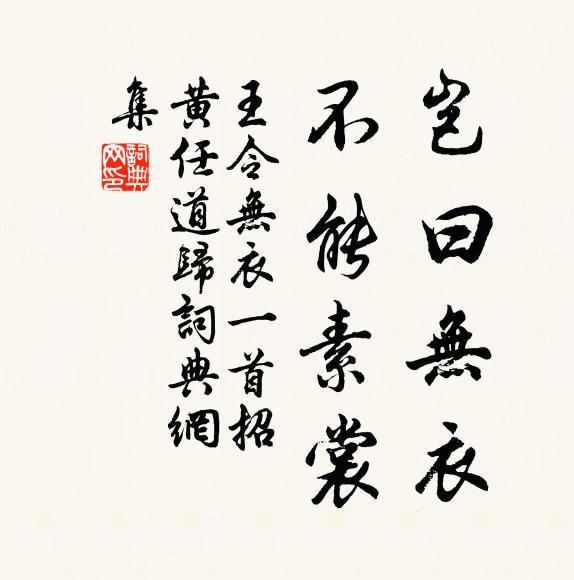 豈曰無衣
不能素裳
王令無衣一首招
黃任道歸詞典網
集
詞典
网印